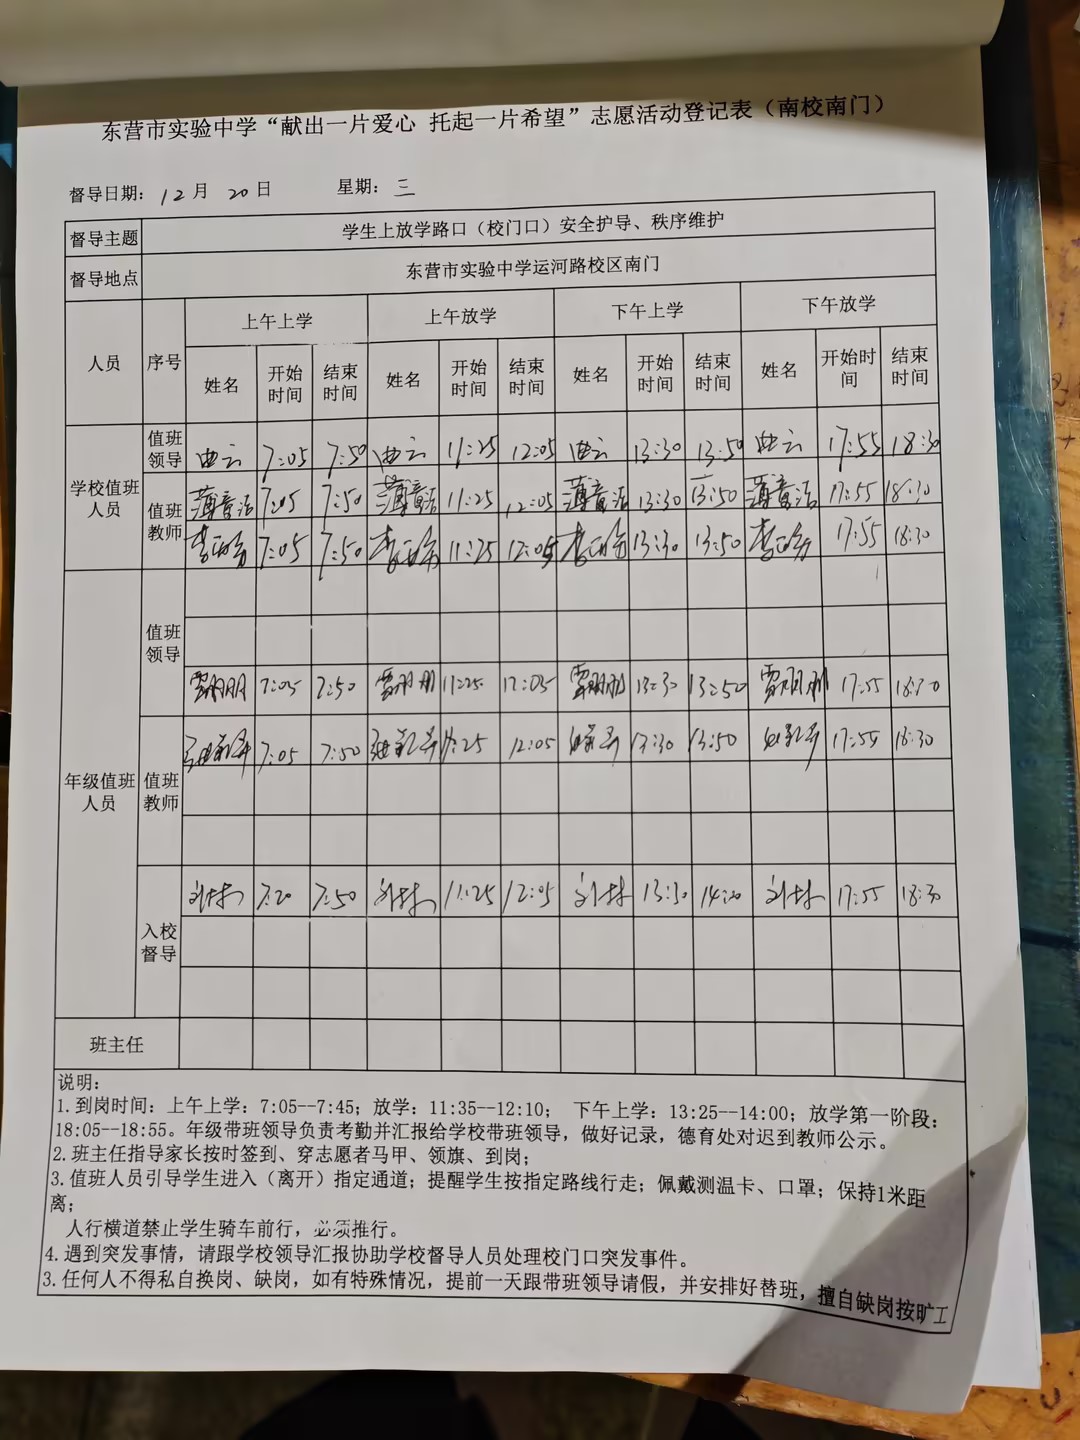 东营市实验中学“献出一片爱心 托起一片希望”志愿活动登记表（南校南门）
督导日期： 12月 20日 星期：三
督导主题 学生上放学路口（校门口）安全护导、秩序维护
督导地点 东营市实验中学运河路校区南门
人员 序号 上午上学 上午放学 下午上学 下午放学
姓名 开始时间 结束时间 姓名 开始时间 结束时间 姓名 开始时间 结束时间 姓名 开始时间 结束时间
学校值班人员 值班领导 曲云 7:05 7:50 曲云 11:25 12:05 曲云 13:30 13:50 曲云 17:55 18:30
值班教师 7:05 7:50 11:25 12:05 13:30 13:50 17:55 18:30
7:05 7:50 11:25 12:05 13:30 13:50 17:55 18:30
年级值班人员 值班领导
7:05 7:50 11:25 12:05 13:30 13:50 17:55 18:30
值班教师 7:05 7:50 11:25 12:05 13:30 13:50 17:55 18:30
入校督导 刘林 7:20 7:50 刘林 11:25 12:05 刘林 13:30 14:20 刘林 17:55 18:30
班主任
说明：
1.到岗时间：上午上学：7:05--7:45；放学：11:35--12:10； 下午上学：13:25--14:00；放学第一阶段：
18:05--18:55。年级带班领导负责考勤并汇报给学校带班领导，做好记录，德育处对迟到教师公示。
2.班主任指导家长按时签到、穿志愿者马甲、领旗、到岗；
3.值班人员引导学生进入（离开）指定通道；提醒学生按指定路线行走；佩戴测温卡、口罩；保持1米距
离；
人行横道禁止学生骑车前行，必须推行。
4.遇到突发事情，请跟学校领导汇报协助学校督导人员处理校门口突发事件。
3.任何人不得私自换岗、缺岗，如有特殊情况，提前一天跟带班领导请假，并安排好替班，擅自缺岗按旷工